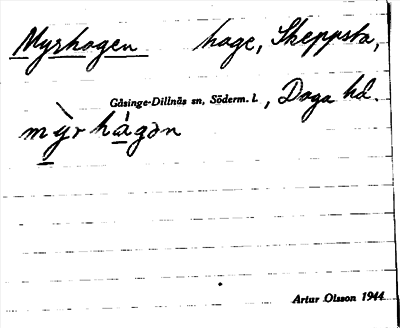 Myrhagen hage, Skeppsta,
Gåsinge-Dillnäs sn, Söderm. l., Daga hd.
mỳr hágən
Artur Olsson 1944